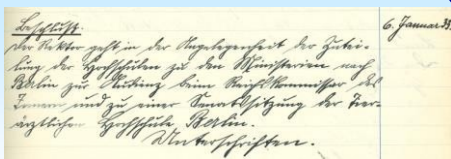 Beschluß: 6. Januar 33.
Der Rektor geht in der Angelegenheit der Zutei-
lung der Hochschulen zu den Ministerien nach
Berlin zur Audienz beim Reichskommissar des
Innern und zu einer Senatssitzung der Tier-
ärztlichen Hochschule Berlin.
Unterschriften.